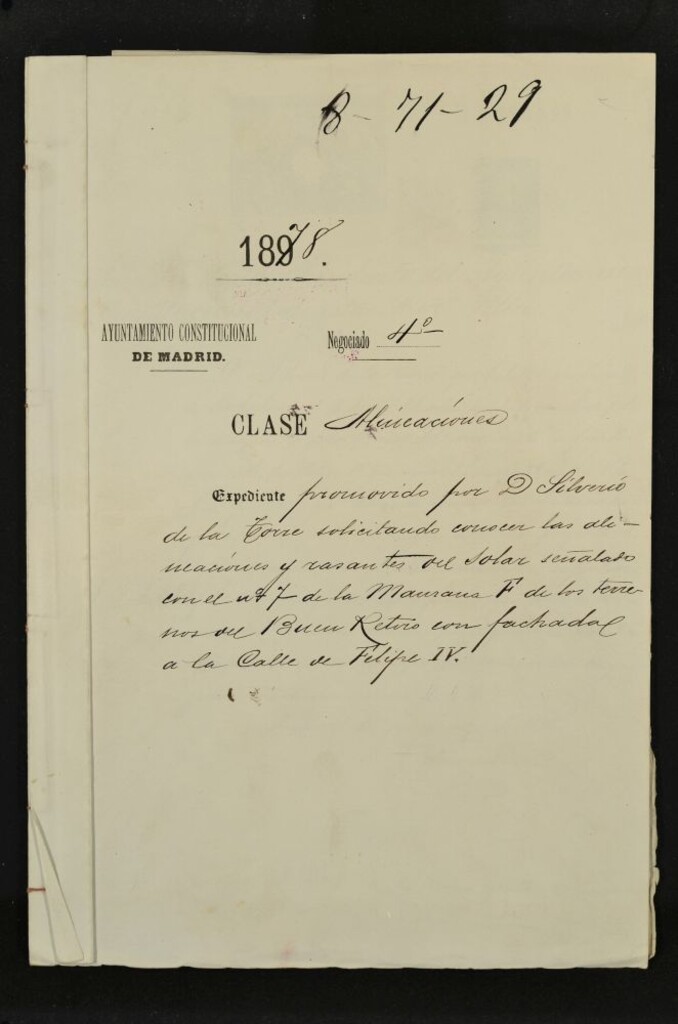 8-71-29
1878.
AYUNTAMIENTO CONSTITUCIONAL
DE MADRID.
Negociado 4º
CLASE Alineaciones
Expediente promovido por D Silverio
de la Torre solicitando conocer las ali-
neaciones y rasantes del Solar señalado
con el nº 7 de la Manzana F de los terre-
nos del Buen Retiro con fachada
a la Calle de Filipe IV.